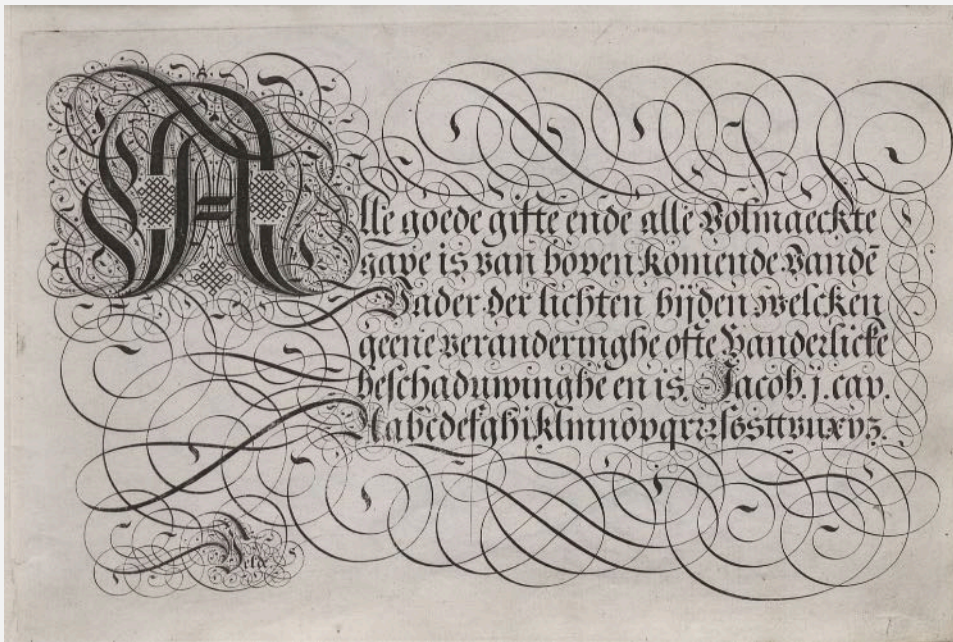 Alle goede gifte ende alle Volmaeckte
gave is van boven komende Vandē
Vader der lichten bijden welcken
geene veranderinghe ofte Vanderlicke
beschaduwinghe en is. Jacob. j. cap.
Aabcdefghiklmnopqrrzsssttvuxyz.
Velde